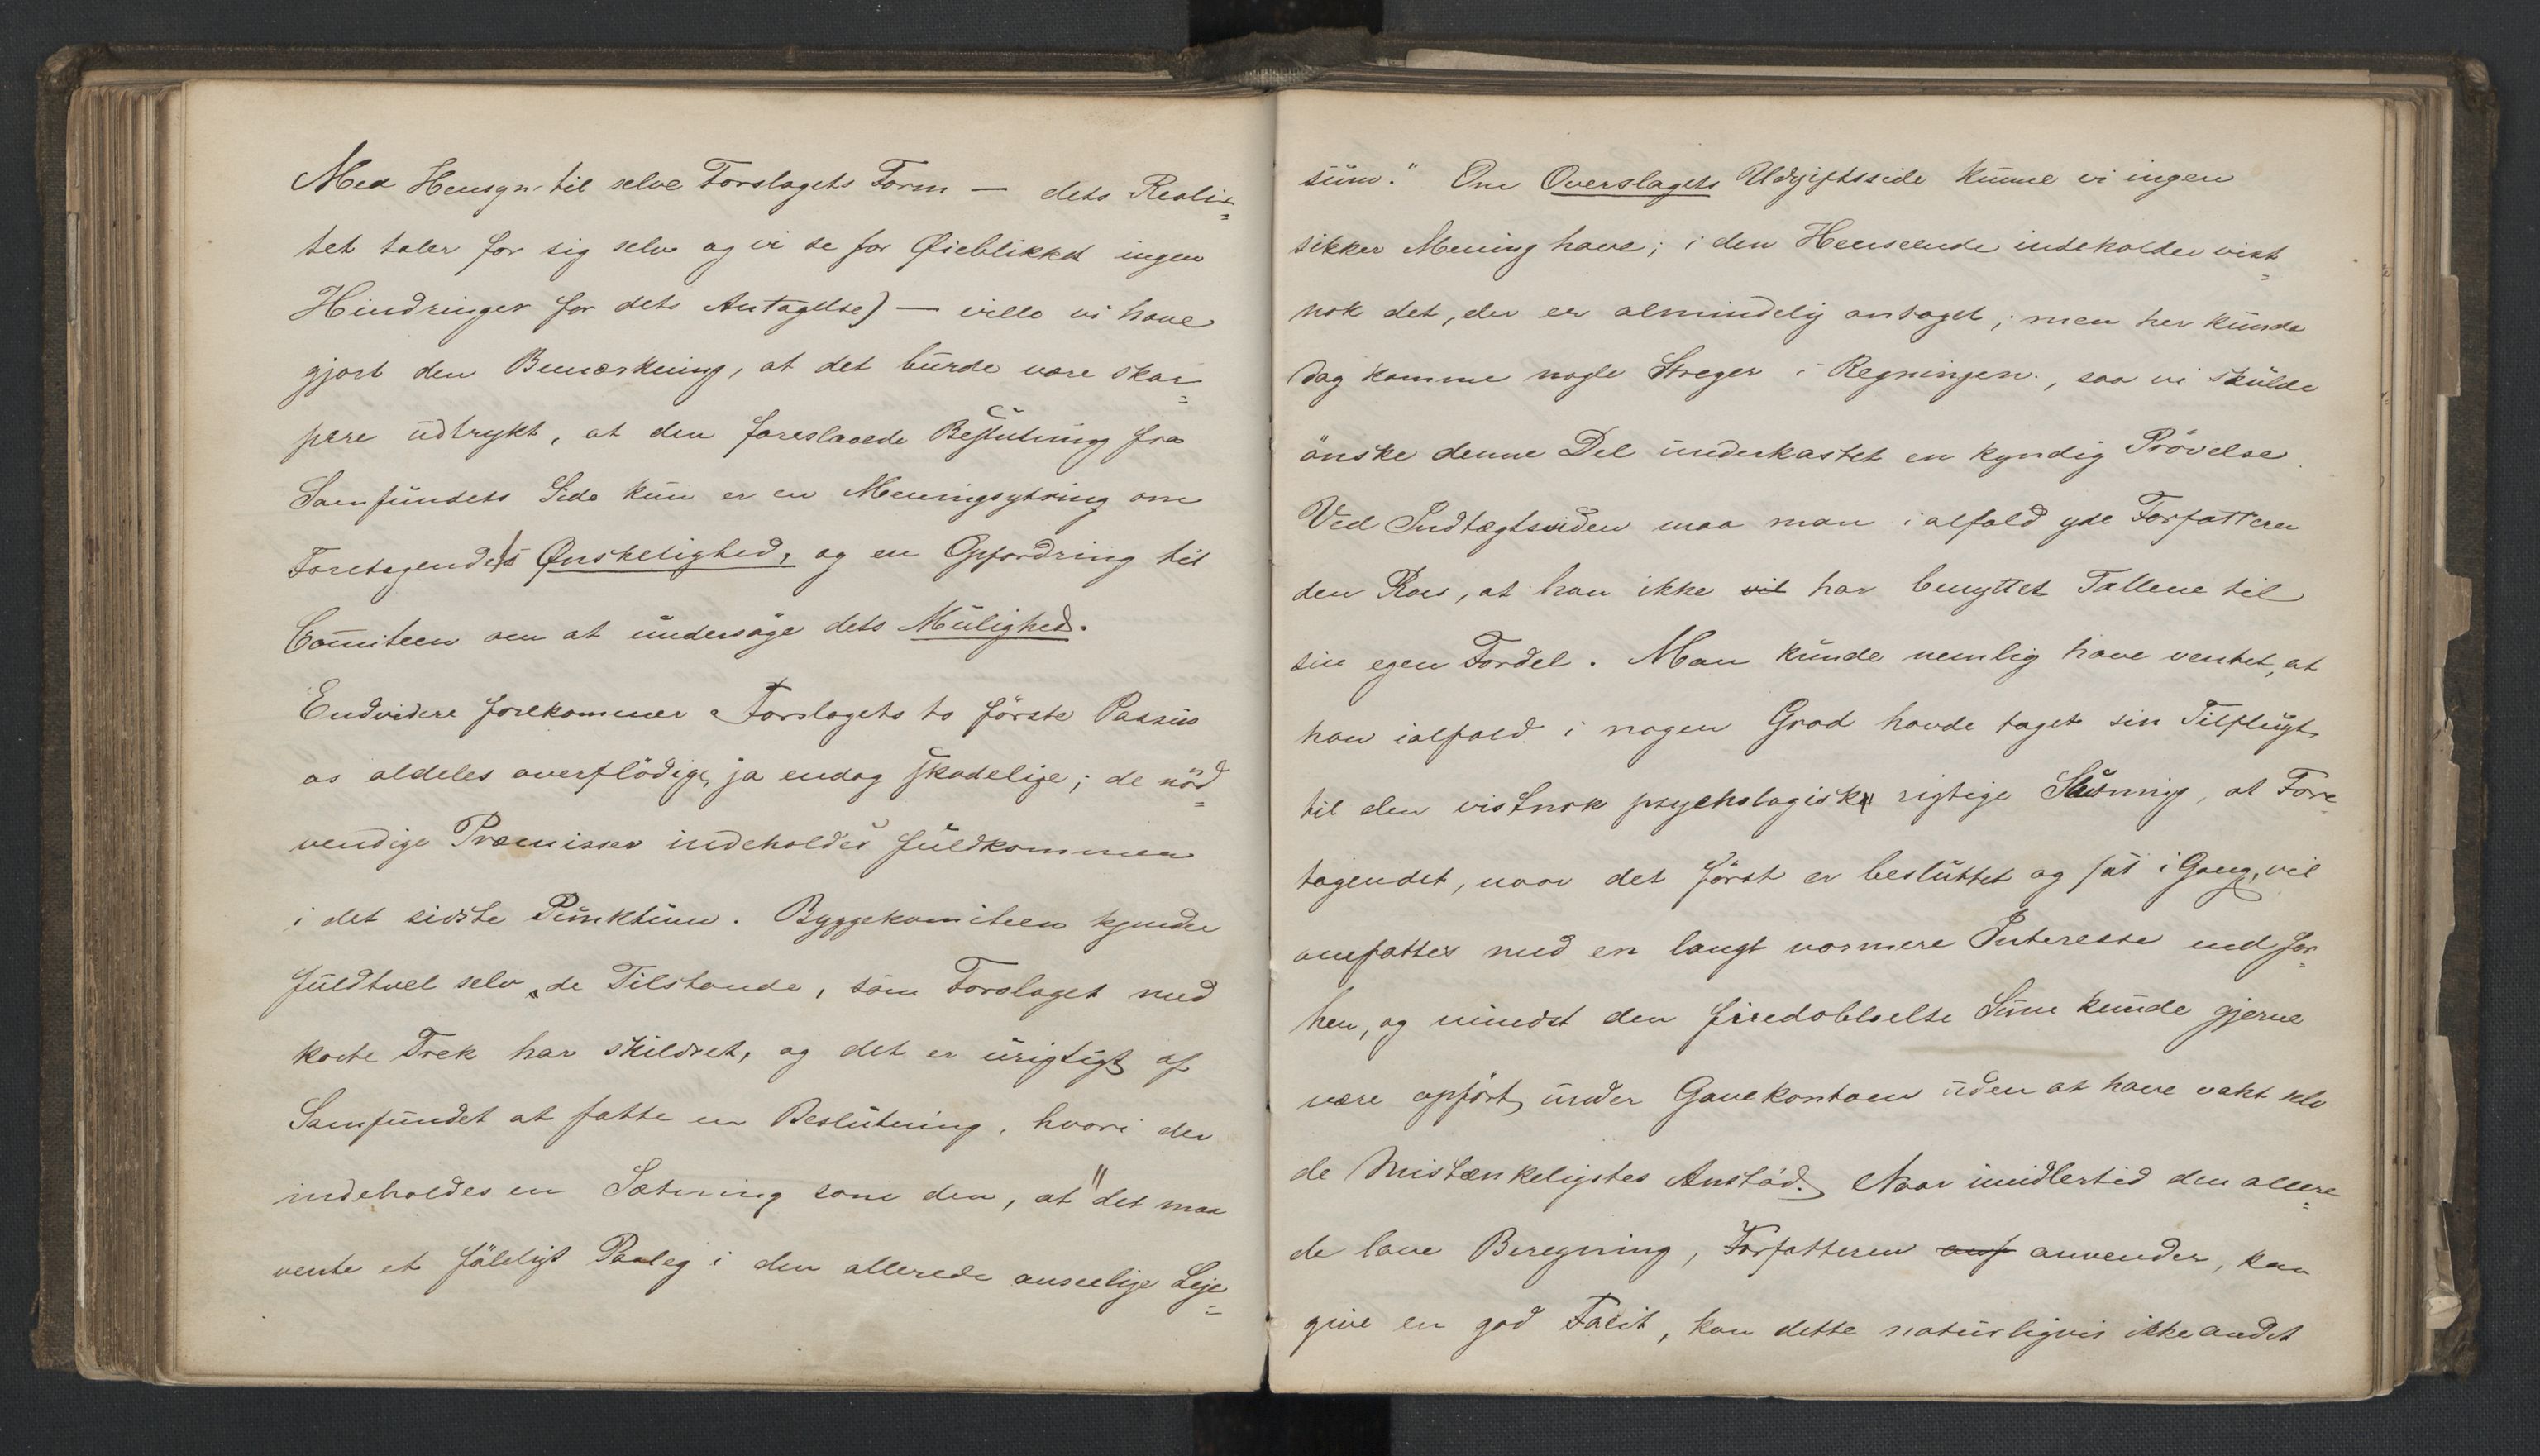 Med Hensyn til selve Forslagets Form — dets Reali-
tet taler for sig selv og vi se for Øieblikket ingen
Hindringer for dets Antagelse) — ville vi have
gjort den Bemærkning, at det burde være skar-
pere udtrykt, at den foreslaaede Beslutning fra
Samfundets Side kun er en Meningsytring om
Foretagendets Ønskelighed, og en Opfordring til
Comiteen om at undersøge dets Mulighed.
Endvidere forekommer Forslagets to første Passus
os aldeles overflödige, ja endog skadelige; de nöd-
vendige Præmisser indeholdes fuldkommen
i det sidste Punktum. Byggekomiteen kjender
fuldtvel selv de Tilstande, som Forslaget med
korte Træk har skildret, og det er urigtigt af
Samfundet at fatte en Beslutning, hvori der
indeholdes en Sætning som den, at "det maa
vente et föleligt Paalæg i den allerede anseelige Leje-
sum." Om Overslagets Udgiftsside kunne vi ingen
sikker Mening have; i den Henseende indeholder vist-
nok det, der er almindelig antaget; men her kunde
dog komme nogle Streger i Regningen, saa vi skulde
önske denne Del underkastet en kyndig Prövelse.
Ved Indtægtsiden maa man ialfald yde Forfatteren
den Roes, at han ikke vil har benyttet Tallene til
sin egen Fordel. Man kunde nemlig have ventet, at
han ialfald i nogen Grad havde taget sin Tilflugt
til den vistnok psychologisk rigtige Slutning, at Fore-
tagendet, naar det först er besluttet og sat i Gang, vil
omfattes med en langt varmere Interesse end för-
hen, og mindst den firedobbelte Sum kunde gjerne
være opfört under Gavekontoen uden at have vakt selv
de Mistænkeligstes Anstöd. Naar imidlertid den allere-
de lave Beregning, Forfatteren anf anvender, kan
give en god Facit, kan dette naturligvis ikke andet